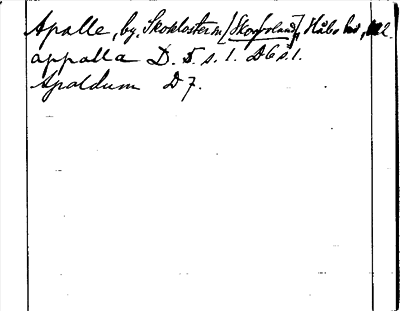 Apalle, by, Skokloster sn [Skogsland], Håbo hd, Upl.
appalla D. 5. s. 1. D 6 s. 1.
Apaldum D 7.